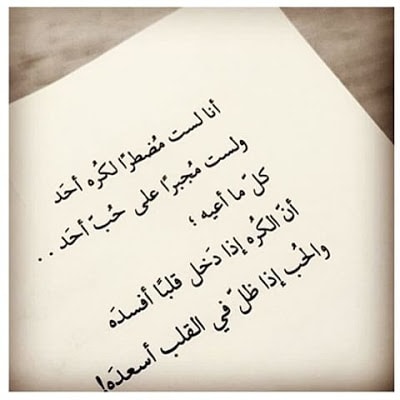 أنا لست مُضطرًا لكُره أحَد
ولست مُجبرًا على حُبّ أحَد . .
كلّ ما أعيه ؛
أنّ الكُره إذا دَخل قلبًا أفسدَه
والحُب إذا ظلّ في القلب أسعدَه!